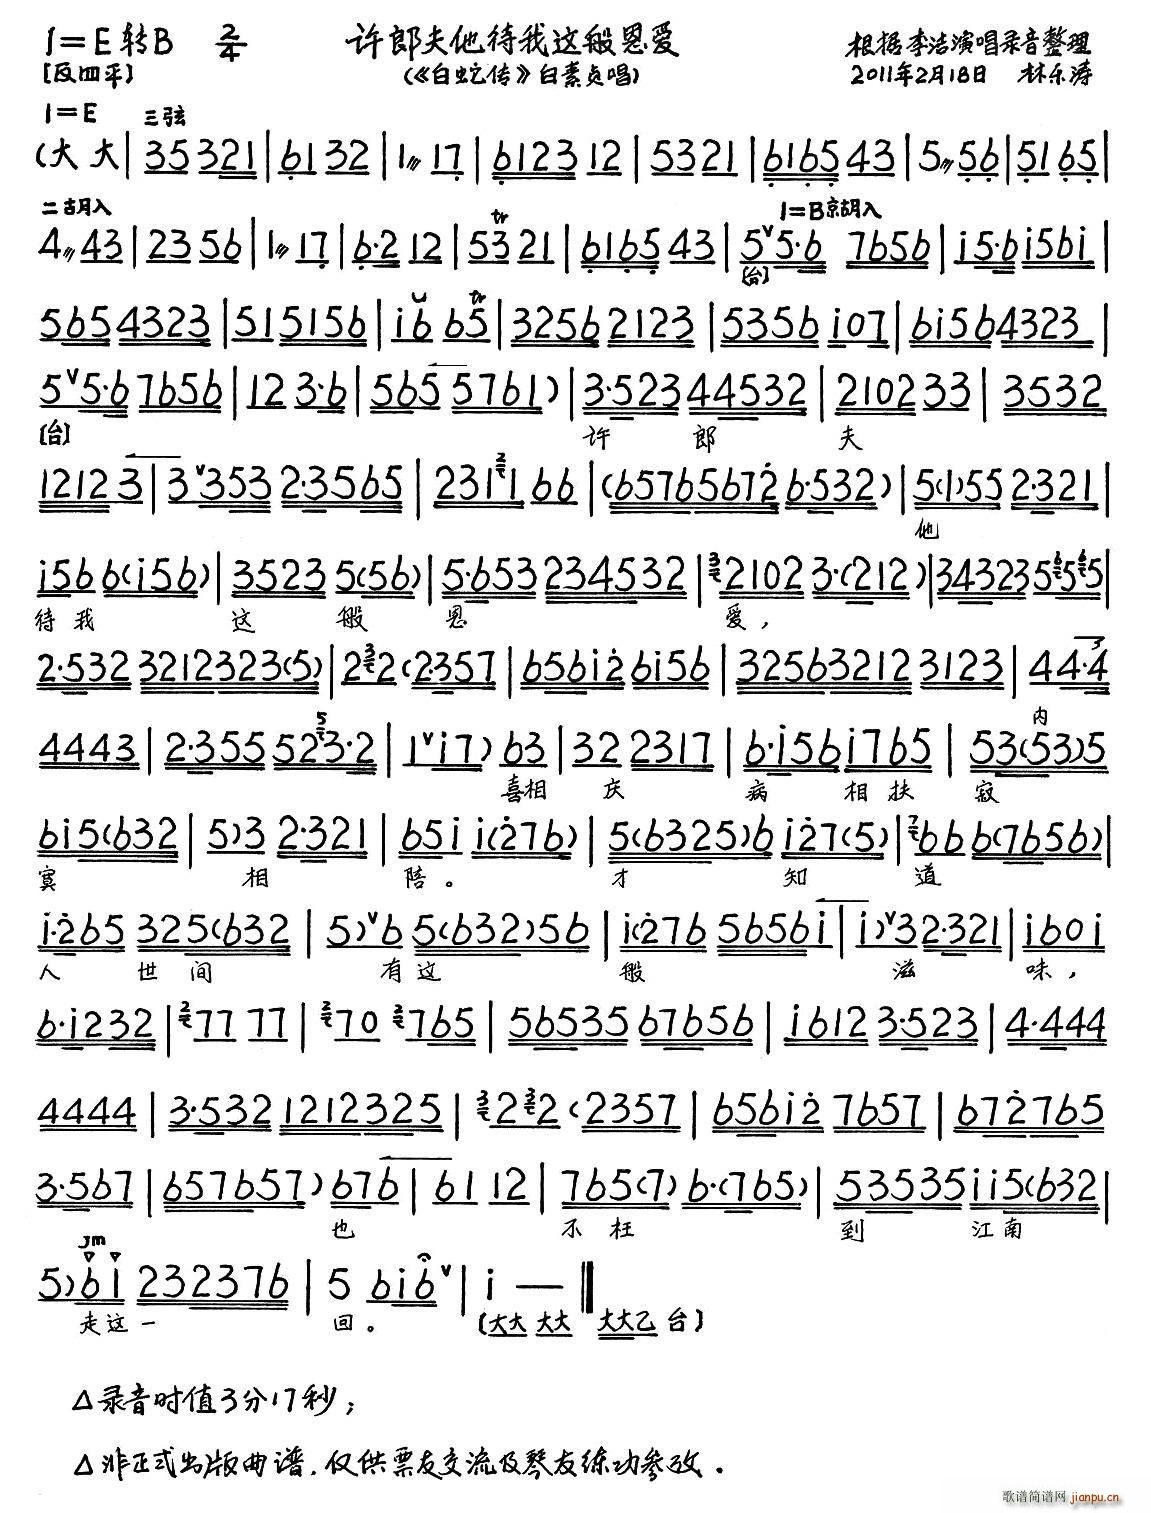 1=E转B 2/4 许郎夫他待我这般恩爱 根据李洁演唱录音整理
[反四平] (《白蛇传》白素贞唱) 2011年2月18日 林乐涛
1=E 三弦
(大大|35 321|6132|1〃17|6123 12|5321|6165 43|5〃56|5165|
二胡入 tr 1=B京胡入
4〃43|23 56|1〃17|6·2 12|53 21|6165 43|5ˇ5·6 7656|i5·6i56i|
[台]
tr
565 4323|51 5156|i6 65|3256 2123|5356 i07|6i56 4323|
5ˇ5·6 7656|12 3·6|565 5761)|3·523 44532|2102 33|3532
[台] 许 郎 夫
1212 3|3ˇ353 2·3565|231 1 66|(65765672 6·532)|5(1)55 2·321|
他
i56 6(i56)|3523 5(56)|5·653 234532|2102 3·(212)|34323 5 5 5|
待我 这 般 恩 爱，
2·532 3212323(5)|2 2(2·357|656i2 6i56|32563212 3123|44·4
4443|2·355 523·2|1ˇi7)63|32 2317|6·i56 i765|53(53)5
内
喜相 庆 病 相扶 寂
6i5(632|5)3 2·321|65i i(276)|5(6325)6 i27(5)|66 6(7656)|
寞 相 陪。 才 知 道
i·265 325(632|5)ˇ6 5(632)56|i(276 5656i|i)ˇ32·321|i60i
人 世 间 有这 般 滋 味，
6·i232|77 77|70 765|56535 67656|i612 3·523|4·444
4444|3·532 1212325|2 2(2357|656i2 7657|672765
3·567|657657)676|61 12|765(7)6·(765)|53535ii5(632|
也 不枉 到 江南
jm
5)6i 232376|5 6i6ˇ|i —‖
走这一 回。 (大大 大大 大大乙 台)
△录音时值3分17秒；
△非正式出版曲谱，仅供票友交流及琴友练功参改．
歌谱简谱网 jianpu.cn